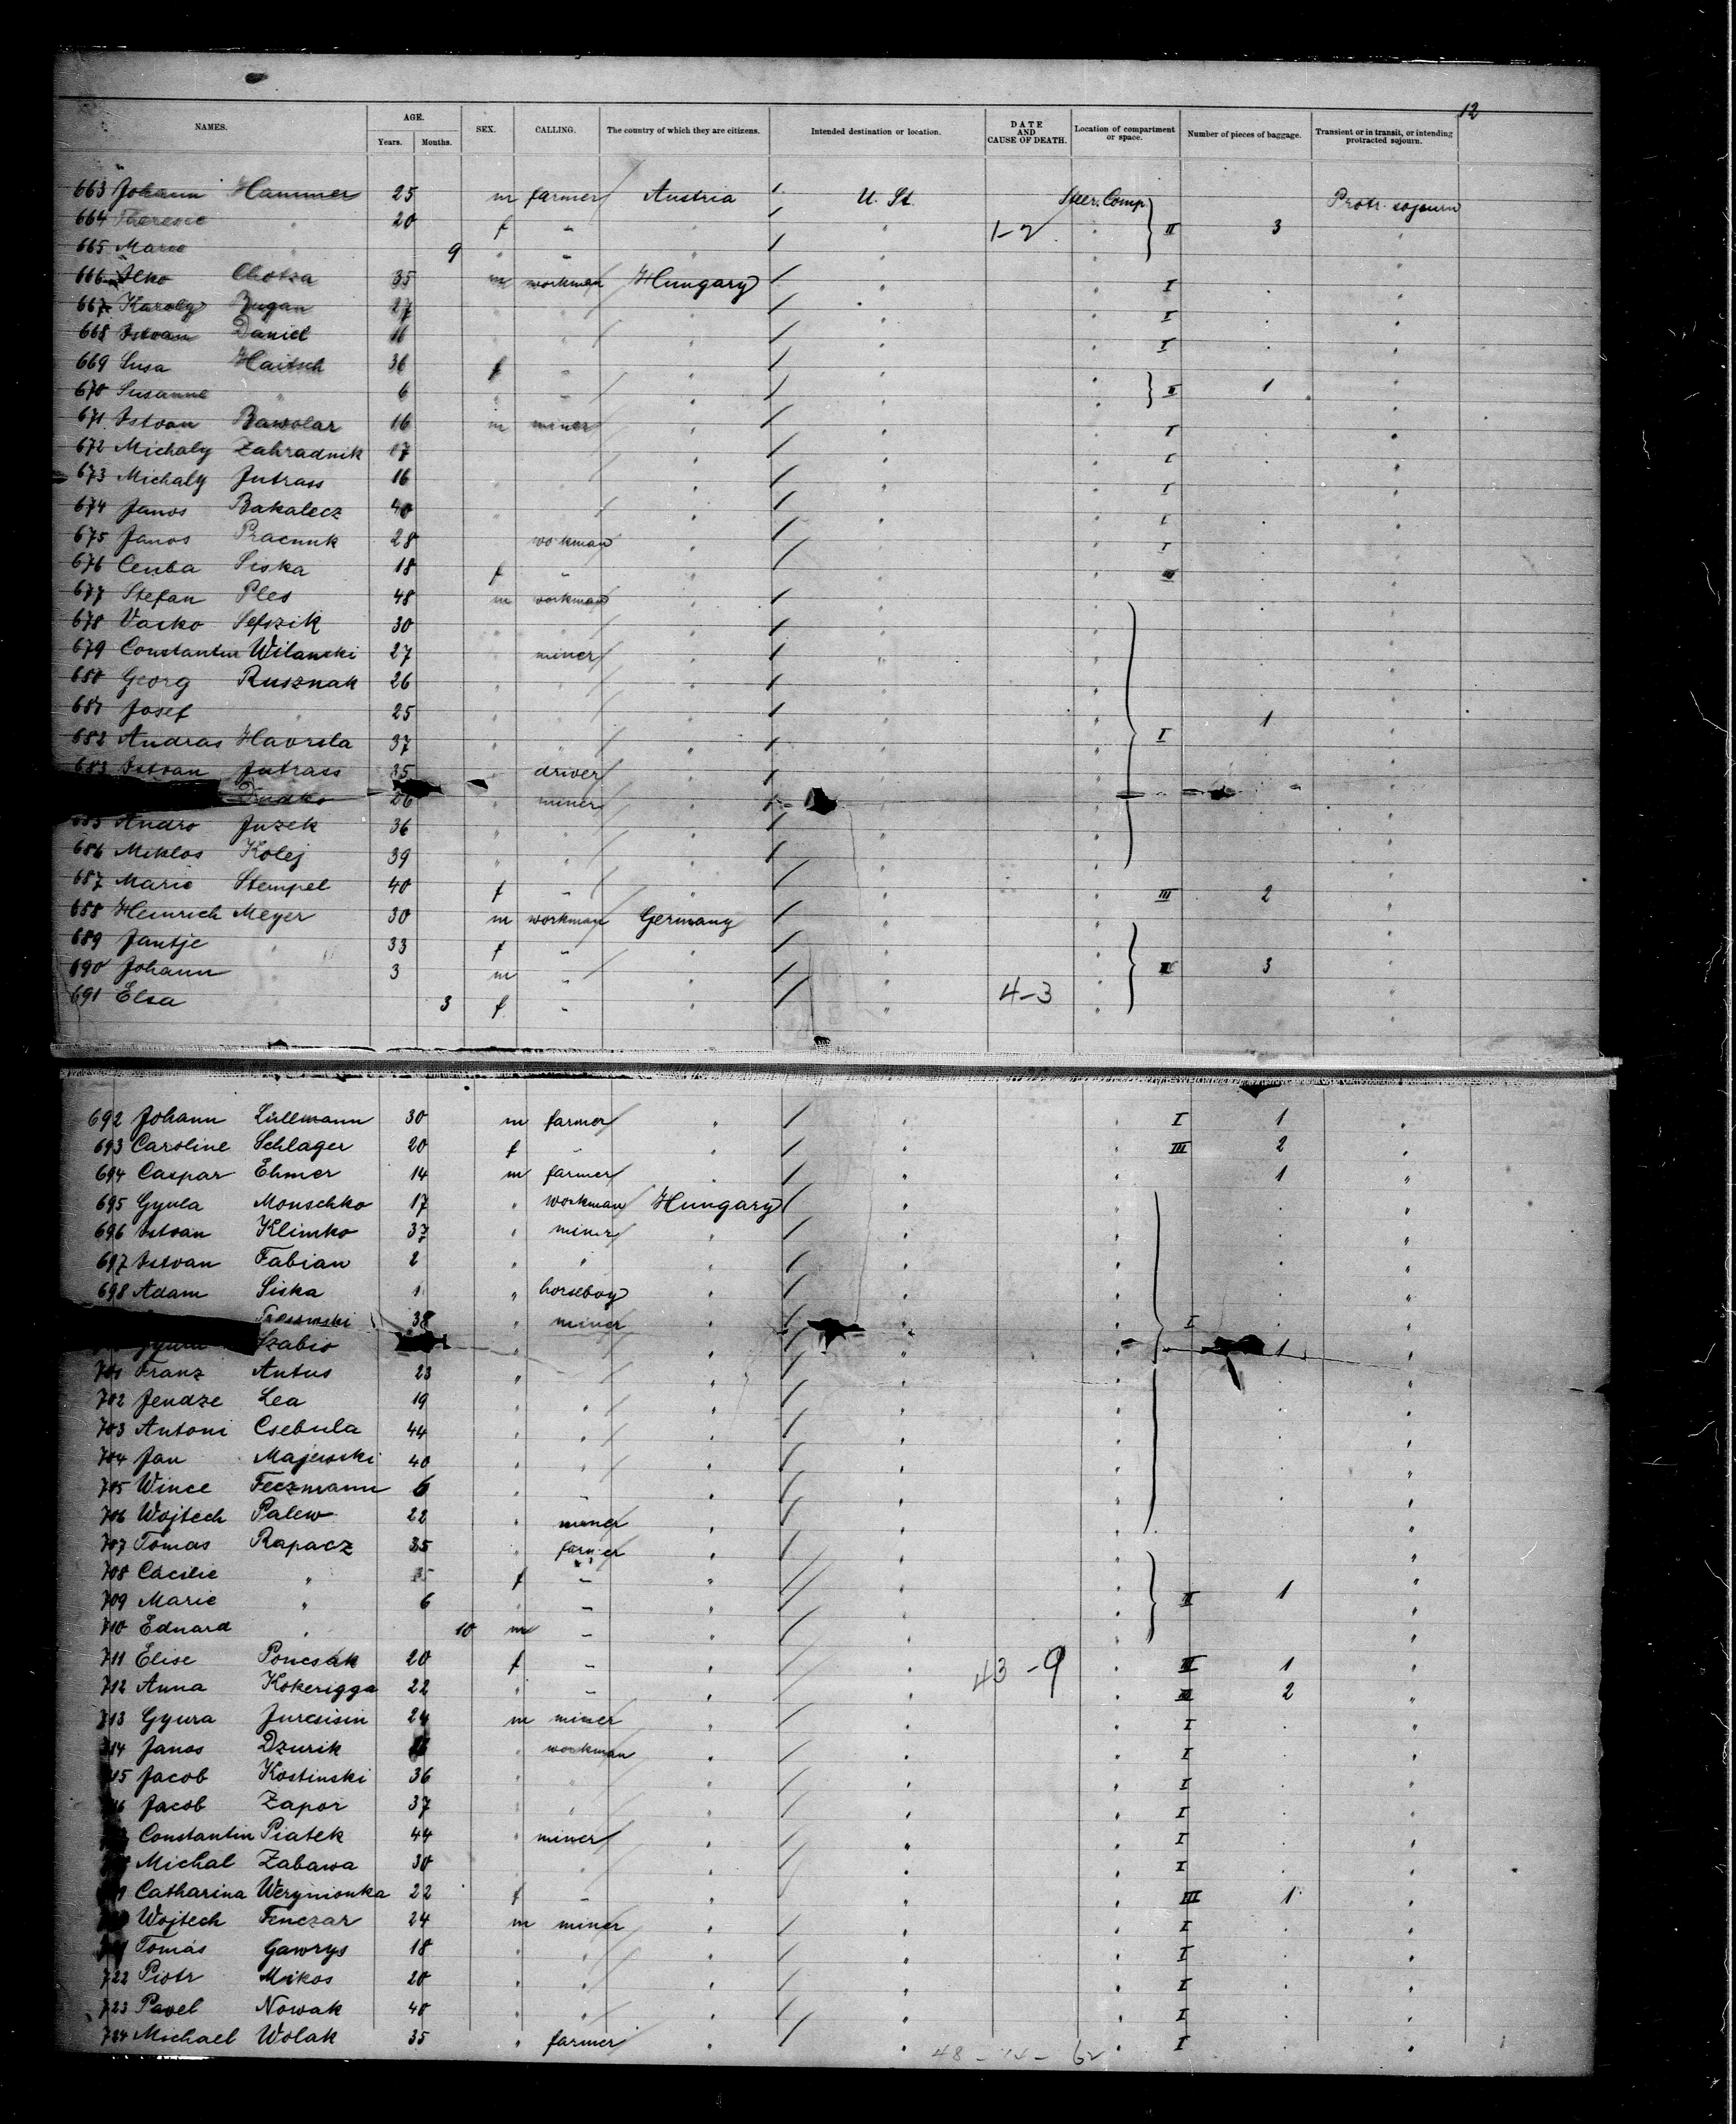 12
NAMES. AGE. Years. Months. SEX. CALLING. The country of which they are citizens. Intended destination or location. DATE AND CAUSE OF DEATH. Location of compartment or space. Number of pieces of baggage. Transient or in transit, or intending protracted sojourn.
663 Johann Hammer 25 m farmer Austria U. St. Steer. Comp. Protr. sojourn
664 Theresie " 20 f - " " 1-2 " II 3 "
665 Marie " 9 " - " " " "
666 Ilko Chotza 35 m workman Hungary " " I "
667 Karoly Bugan 27 " " " " " I "
668 Istvan Daniel 16 " " " " " I "
669 Susa Haitsch 36 f - " " " "
670 Susanne " 6 " - " " " II 1 "
671 Istvan Bawolar 16 m miner " " " I "
672 Michaly Zahradnik 17 " " " " " I "
673 Michaly Jutrass 16 " " " " " I "
674 Janos Bakalecz 40 " " " " " I "
675 Janos Pracnuk 28 workman " " " I "
676 Ceuba Siska 18 f - " " " "
677 Stefan Ples 48 m workman " " " "
678 Vasko Sefszik 30 " " " " " "
679 Constantin Wilanski 27 miner " " " "
680 Georg Rusznak 26 " " " " " "
681 Josef " 25 " " " " " 1 "
682 Andras Havrila 37 " " " " " I "
683 Istvan Jutrass 35 driver " " " "
Dudko 26 " miner " " " "
685 Andro Juzek 36 " " " " " "
686 Miklos Kolej 39 " " " " " "
687 Marie Stempel 40 f - " " " III 2 "
688 Heinrich Meyer 30 m workman Germany " " "
689 Jantje " 33 f - " " " "
690 Johann 3 m - " " " II 3 "
691 Elsa 3 f - " " 4-3 " "
692 Johann Lüllmann 30 m farmer " " " I 1 "
693 Caroline Schlager 20 f - " " " III 2 "
694 Caspar Ehmer 14 m farmer " " " 1 "
695 Gyula Monschko 17 " workman Hungary " " "
696 Istvan Klimko 37 " miner " " " "
697 Istvan Fabian 2 " " " " " "
698 Adam Siska 1 " horseboy " " " "
38 " miner " " " I "
Szabio " " " " 1 "
701 Franz Antus 23 " " " " "
702 Jendze Lea 19 " " " " " "
703 Antoni Csebula 44 " " " " " "
704 Jan Majewski 40 " " " " " "
705 Wince Feczmann 6 " - " " " "
706 Wojtech Palew 22 " miner " " " "
707 Tomas Rapacz 35 " farmer " " " "
708 Cäcilie " f - " " " "
709 Marie " 6 " - " " " II 1 "
710 Eduard " 10 m - " " " "
711 Elise Poncsák 20 f - " " 43-9 " III 1 "
712 Anna Kokerigga 22 " - " " " III 2 "
713 Gyura Jurcsisin 24 m miner " " " I "
714 Janos Dzurik " workman " " " I "
715 Jacob Kostinski 36 " " " " " I "
716 Jacob Zapor 37 " " " " " I "
Constantin Piatek 44 " miner " " " I "
Michal Zabawa 30 " " " " " I "
Catharina Werynionka 22 f - " " " III 1 "
Wojtech Fenczar 24 m miner " " " I "
Tomás Gawrys 18 " " " " " I "
722 Piotr Mikos 20 " " " " " I "
723 Pavel Nowak 40 " " " " " I "
724 Michael Wolak 35 " farmer " " " I "
48 - 14 - 62